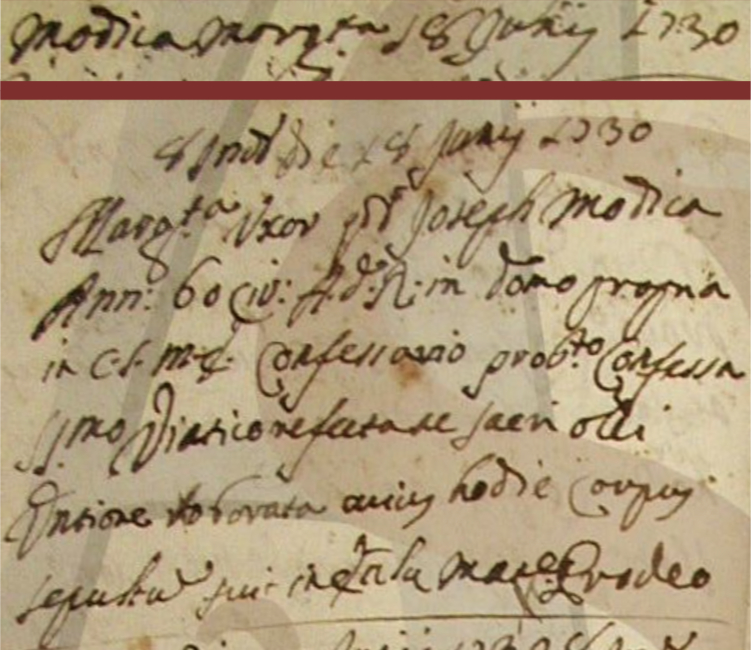 Modica Margta 18 Junij 1730
8 Ind die 18 Junij 1730
Margta Uxor Joseph Modica
Ann: 60 Civ: in domo propria
in C.S.M.E. Confessario probto Confessa
SSmo Viatico refecta ac sacri olei
Untione roborata cuius hodie Corpus
sepultu fuit in Eccla